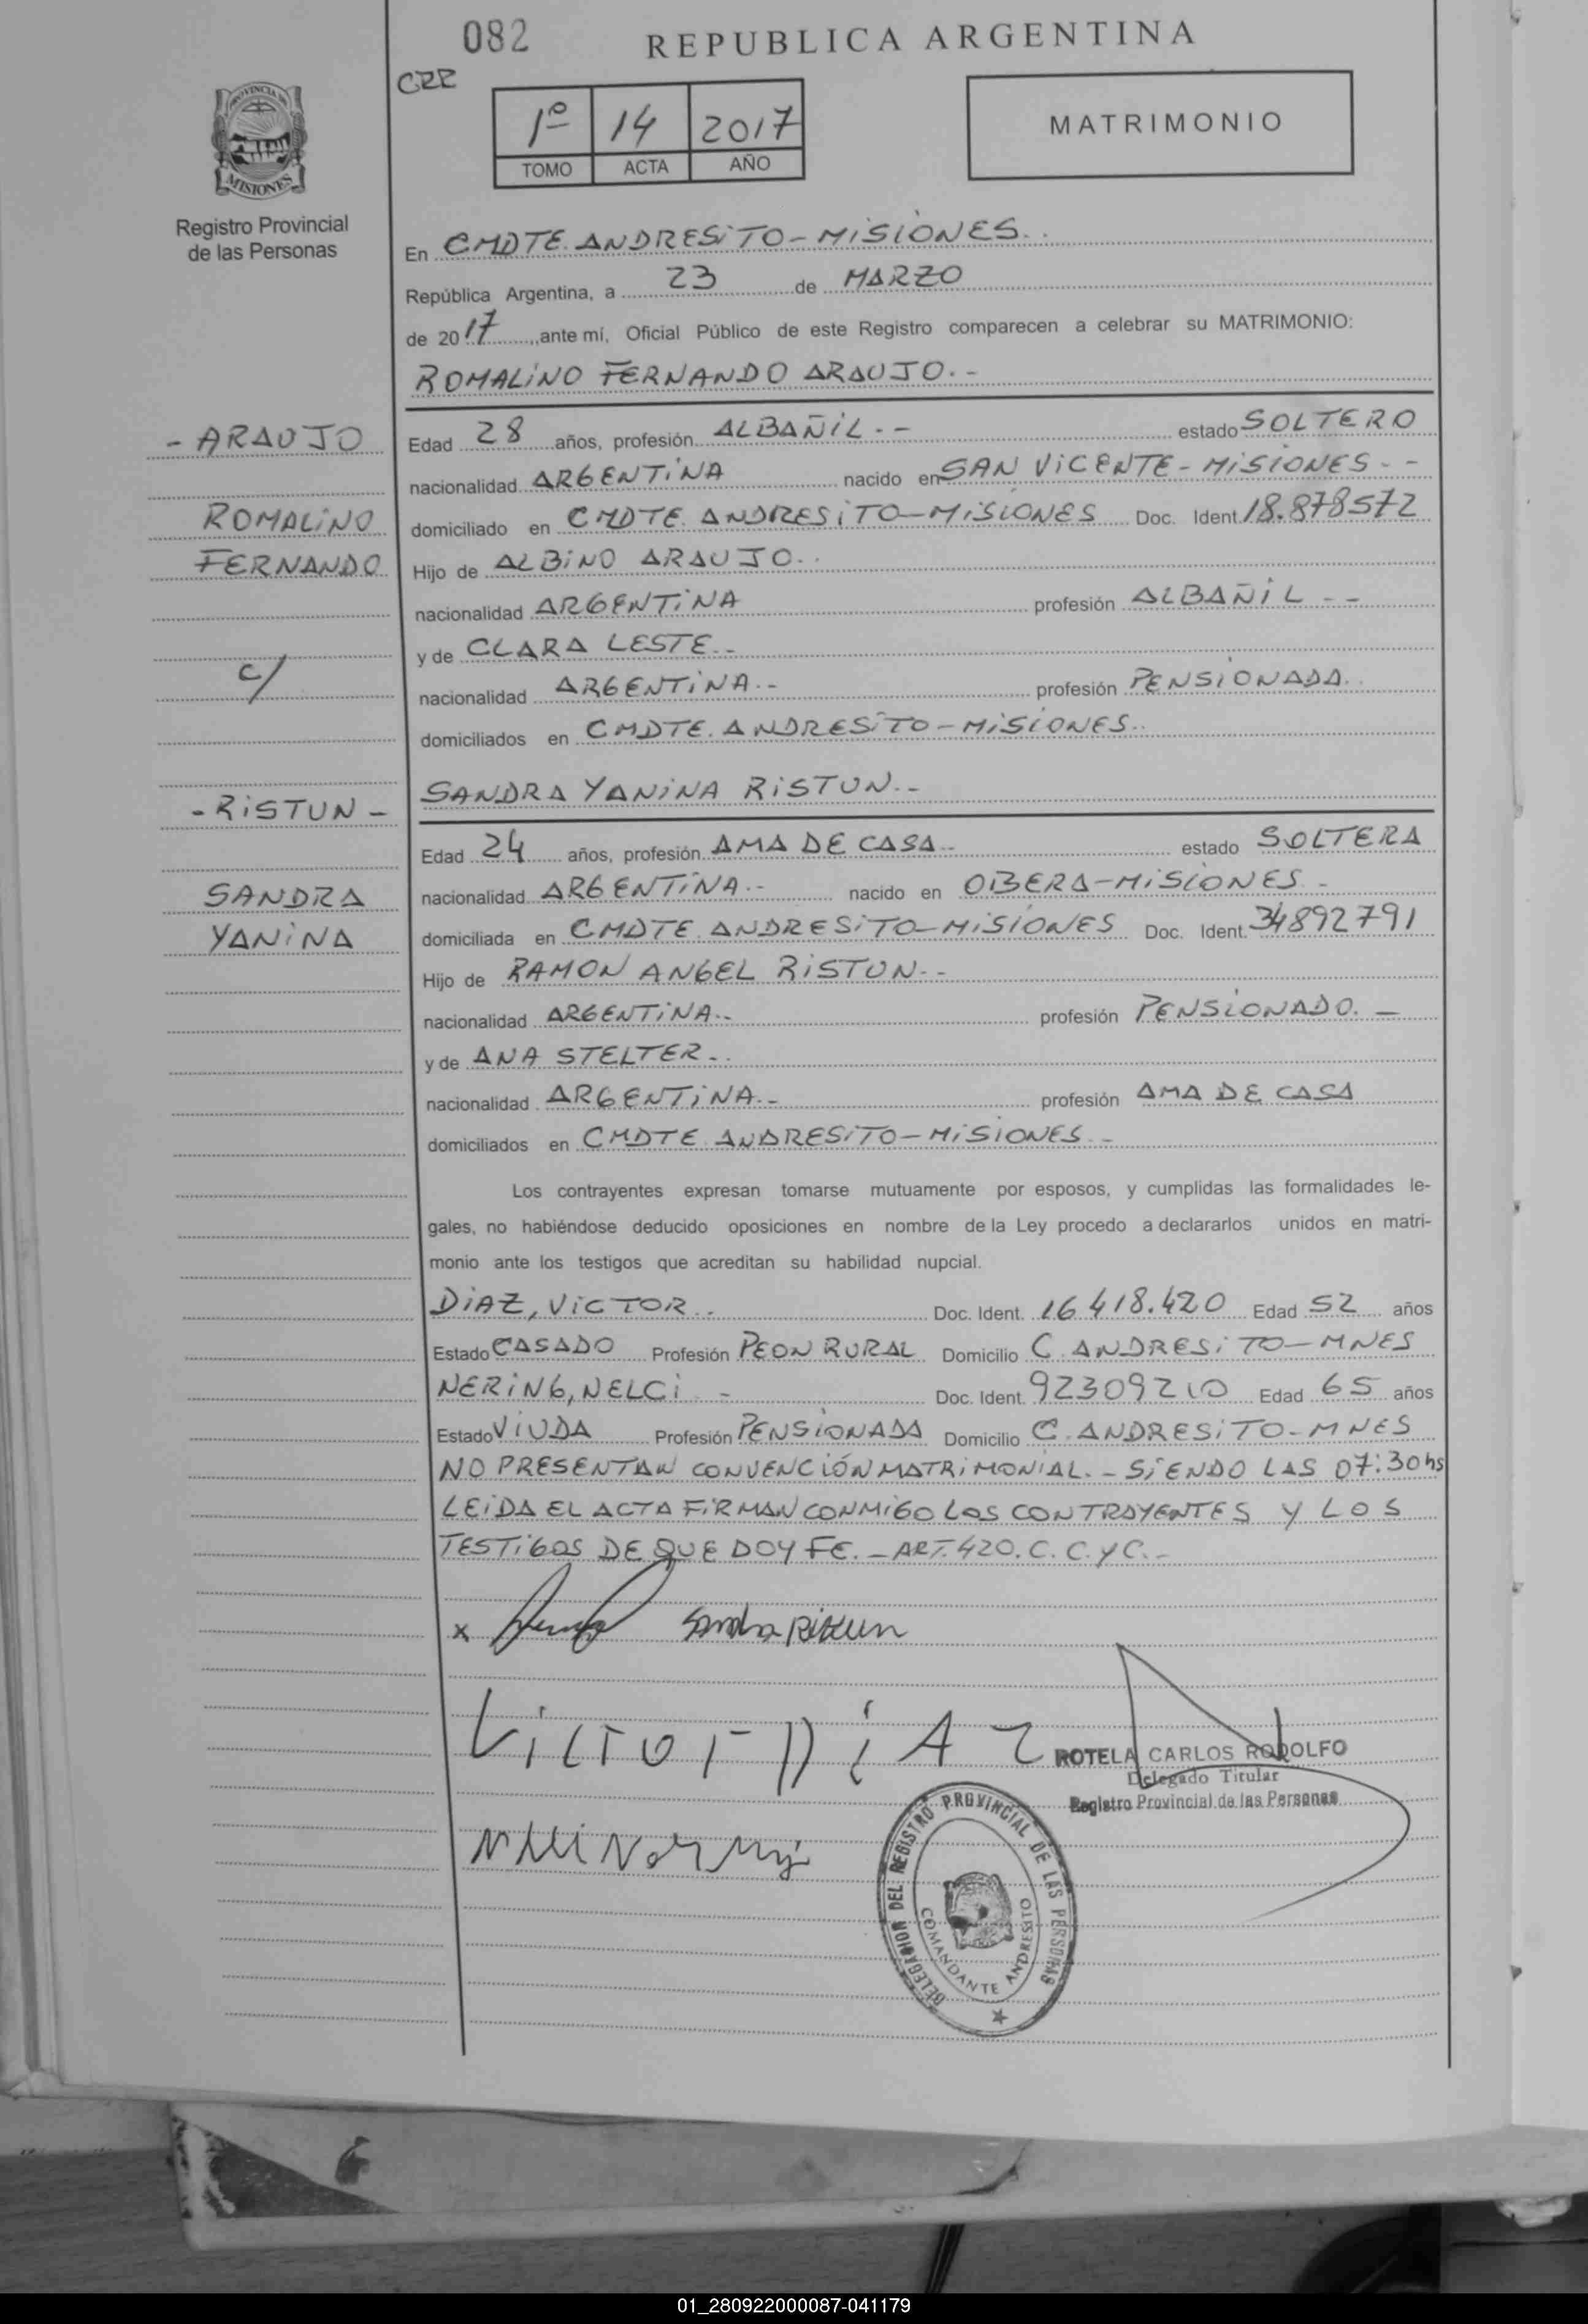 082
REPUBLICA ARGENTINA
CRR
1º 14 2017
TOMO ACTA AÑO
MATRIMONIO
PROVINCIA DE
MISIONES
Registro Provincial
de las Personas
En CMDTE. ANDRESiTO-MiSiONES..
República Argentina, a 23 de MARZO
de 2017, ante mí, Oficial Público de este Registro comparecen a celebrar su MATRIMONIO:
ROMALiNO FERNANDO ARAUJO.-
- ARAUJO
Edad 28 años, profesión ALBAÑiL.- estado SOLTERO
nacionalidad ARGENTiNA nacido en SAN ViCENTE-MiSiONES.-
ROMALiNO
domiciliado en CMDTE. ANDRESiTO-MiSiONES Doc. Ident. 18.878572
FERNANDO
Hijo de ALBiNO ARAUJO..
nacionalidad ARGENTiNA profesión ALBAÑiL --
y de CLARA LESTE.-
c/
nacionalidad ARGENTiNA.- profesión PENSiONADA..
domiciliados en CMDTE. ANDRESiTO-MiSiONES..
SANDRA YANiNA RiSTUN.-
- RiSTUN -
Edad 24 años, profesión AMA DE CASA.- estado SOLTERA
nacionalidad ARGENTiNA.- nacido en OBERA-MiSiONES.-
SANDRA
domiciliada en CMDTE. ANDRESiTO-MiSiONES Doc. Ident. 34892791
YANiNA
Hijo de RAMON ANGEL RiSTUN.-
nacionalidad ARGENTiNA.- profesión PENSiONADO.-
y de ANA STELTER..
nacionalidad ARGENTiNA.- profesión AMA DE CASA
domiciliados en CMDTE. ANDRESiTO-MiSiONES.-
Los contrayentes expresan tomarse mutuamente por esposos, y cumplidas las formalidades le-
gales, no habiéndose deducido oposiciones en nombre de la Ley procedo a declararlos unidos en matri-
monio ante los testigos que acreditan su habilidad nupcial.
DiAZ, ViCTOR.. Doc. Ident. 16418.420 Edad 52 años
Estado CASADO Profesión PEON RURAL Domicilio C. ANDRESiTO-MNES
NERiNG, NELCi - Doc. Ident. 92309210 Edad 65 años
Estado ViUDA Profesión PENSiONADA Domicilio C. ANDRESiTO-MNES
NO PRESENTAN CONVENCiÓN MATRiMONiAL.- SiENDO LAS 07:30hs
LEiDA EL ACTA FiRMAN CONMiGO LOS CONTRAYENTES Y LOS
TESTiGOS DE QUE DOY FE.- ART. 420. C.C.yC.-
x Sandra Ristun
Victor DiAZ
ROTELA CARLOS RODOLFO
Delegado Titular
Registro Provincial de las Personas
DELEGACION DEL REGISTRO PROVINCIAL DE LAS PERSONAS
COMANDANTE ANDRESITO
01_280922000087-041179